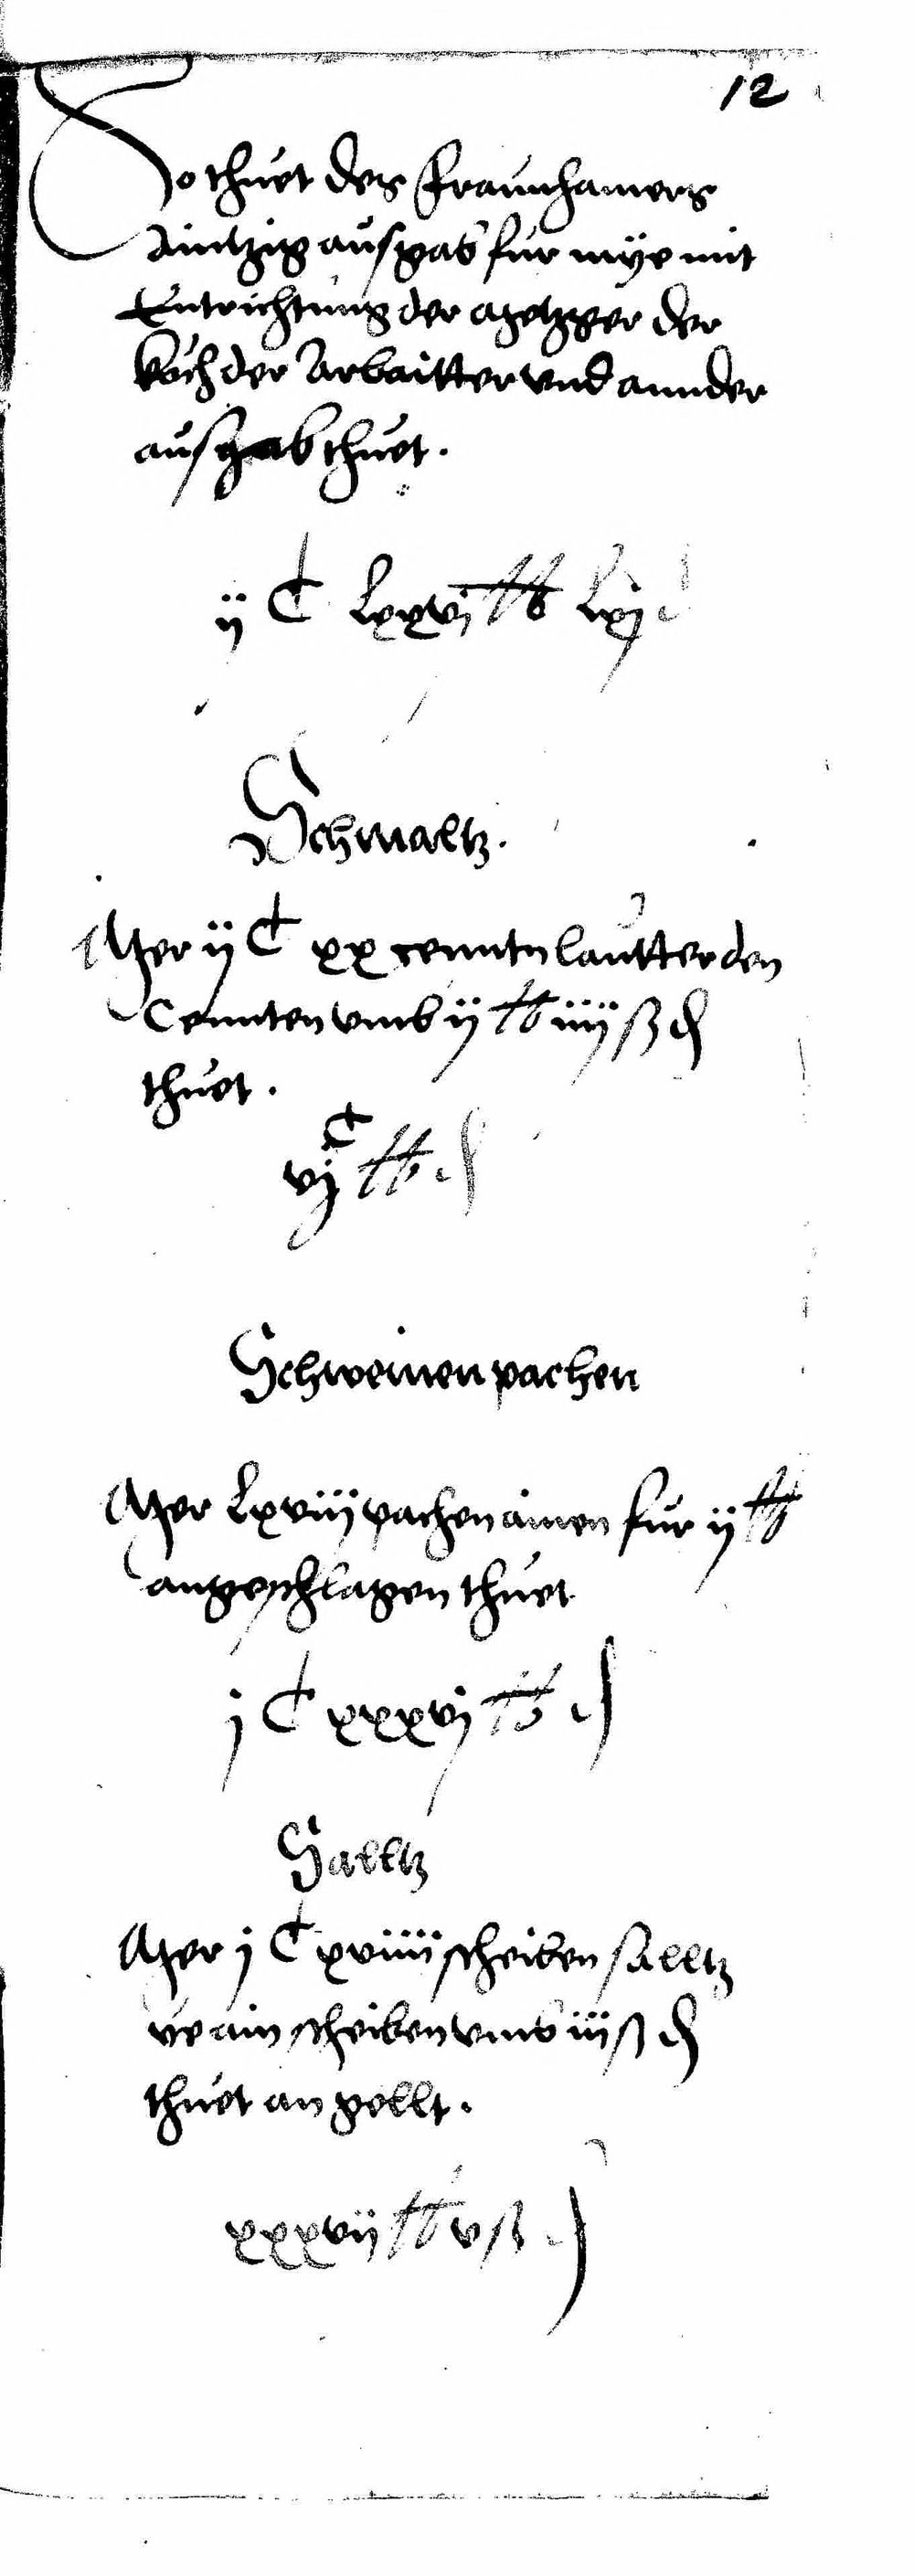 12
So thuet des Fraunhamers
Aintzig ausgab fur mye mit
Entrichtung der Metzger der
koch der Arbaitter vnd annder
ausgab thuet.
ij C lxxvj lb lxj d
Schmaltz.
Mer ij C xx cenntn lautter den
Cennten vmb ij lb iiij ß d
thuet.
vj C lb d
Schweinen pachen
Mer lxviij pachen ainen fur ij lb
angeschlagen thuet
j C xxxvj lb d
Salltz
Mer j C xviiij scheiben salltz
ye ain scheiben vmb iij ß d
thuet an gellt.
xxxvij lb v ß d